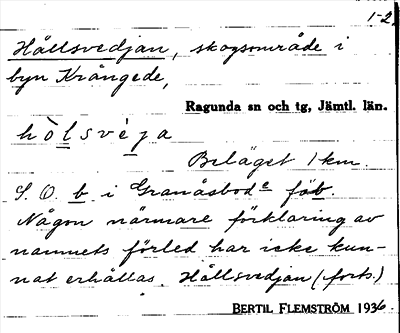 1-2.
Hållsvedjan, skogsområde i
byn Krångede,
Ragunda sn och tg, Jämtl. län.
hòlsvèja
Beläget 1 km.
S. O. b. i Granåsbod e fäb.
Någon närmare förklaring av
namnets förled har icke kun-
nat erhållas. Hållsvedjan (forts.)
BERTIL FLEMSTRÖM 1936.